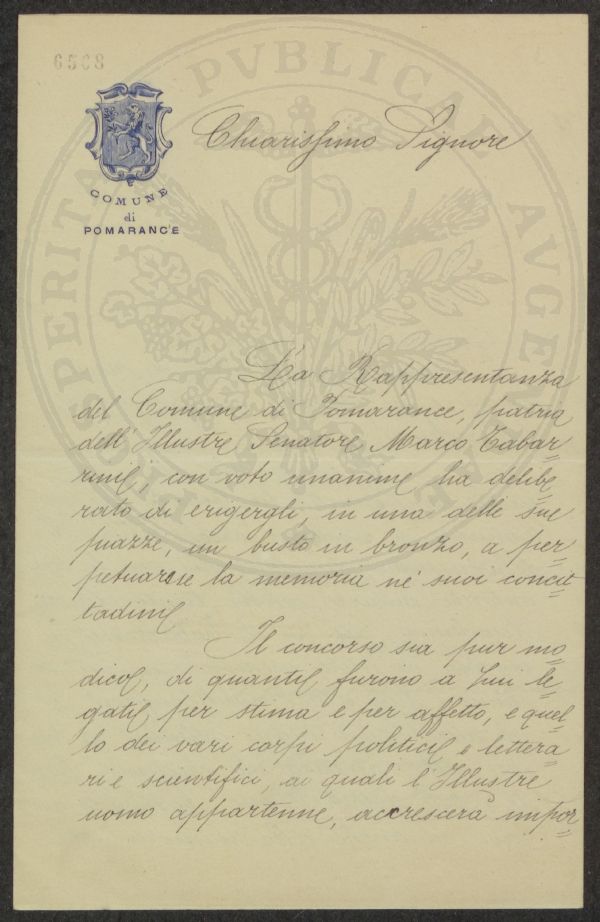 6568
COMUNE
di
POMARANCE
Chiarissimo Signore
La Rappresentanza
del Comune di Pomarance, patria
dell' Illustre Senatore Marco Tabar=
rini, con voto unanime ha delibe=
rato di erigergli, in una delle sue
piazze, un busto in bronzo, a per=
petuarne la memoria ne' suoi concit=
tadini
Il concorso sia pur mo=
dico, di quanti furono a Lui le=
gati per stima e per affetto, e quel=
lo dei vari corpi politici e lettera=
ri e scientifici, ai quali l'Illustre
uomo appartenne, accrescerà impor=
PERITA
PVBLICAE
AVGEN